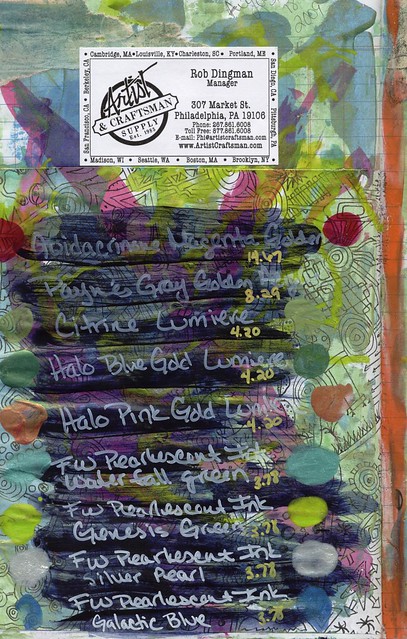 2009
• Cambridge, MA • Louisville, KY • Charleston, SC • Portland, ME
San Francisco, CA • Berkeley, CA
San Diego, CA • Pittsburgh, PA
Artist
& CRAFTSMAN
SUPPLY
Est. 1985
Rob Dingman
Manager
307 Market St.
Philadelphia, PA 19106
Phone: 267.861.6008
Toll Free: 877.861.6008
E-mail: Phi@artistcraftsman.com
www.ArtistCraftsman.com
Madison, WI • Seattle, WA • Boston, MA • Brooklyn, NY
Magenta Golden
19.67
Payne's Gray Golden
8.29
Citrine Lumiere
4.20
Halo Blue Gold Lumiere
4.20
Halo Pink Gold Lumiere
4.20
FW Pearlescent Ink
Waterfall Green 3.78
FW Pearlescent Ink
Genesis Green 3.78
FW Pearlescent Ink
Silver Pearl 3.78
FW Pearlescent Ink
Galactic Blue 3.78